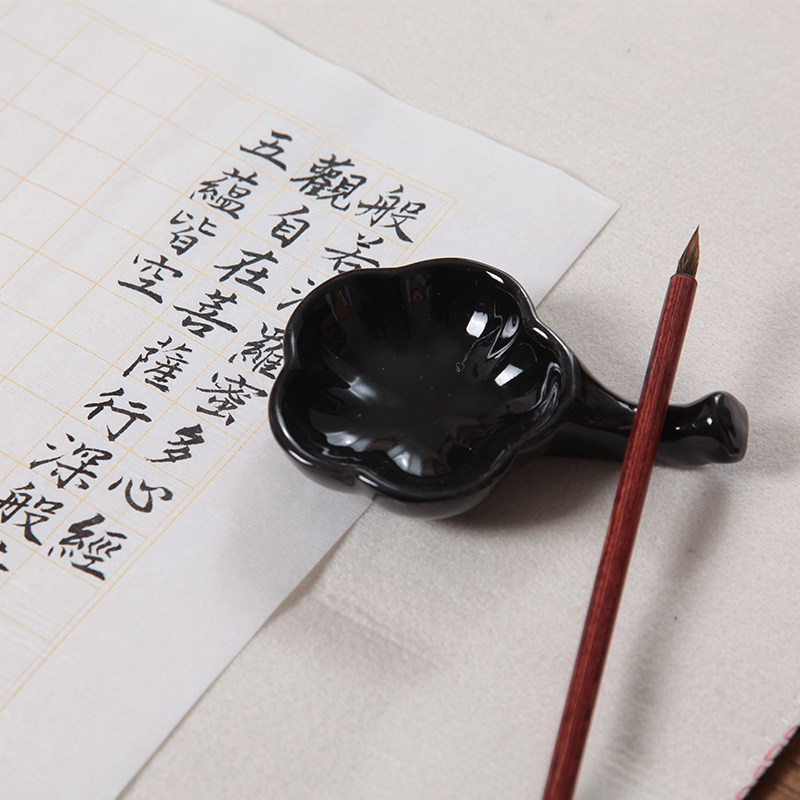 般若羅蜜多心經
觀自在菩薩行深般
五蘊皆空